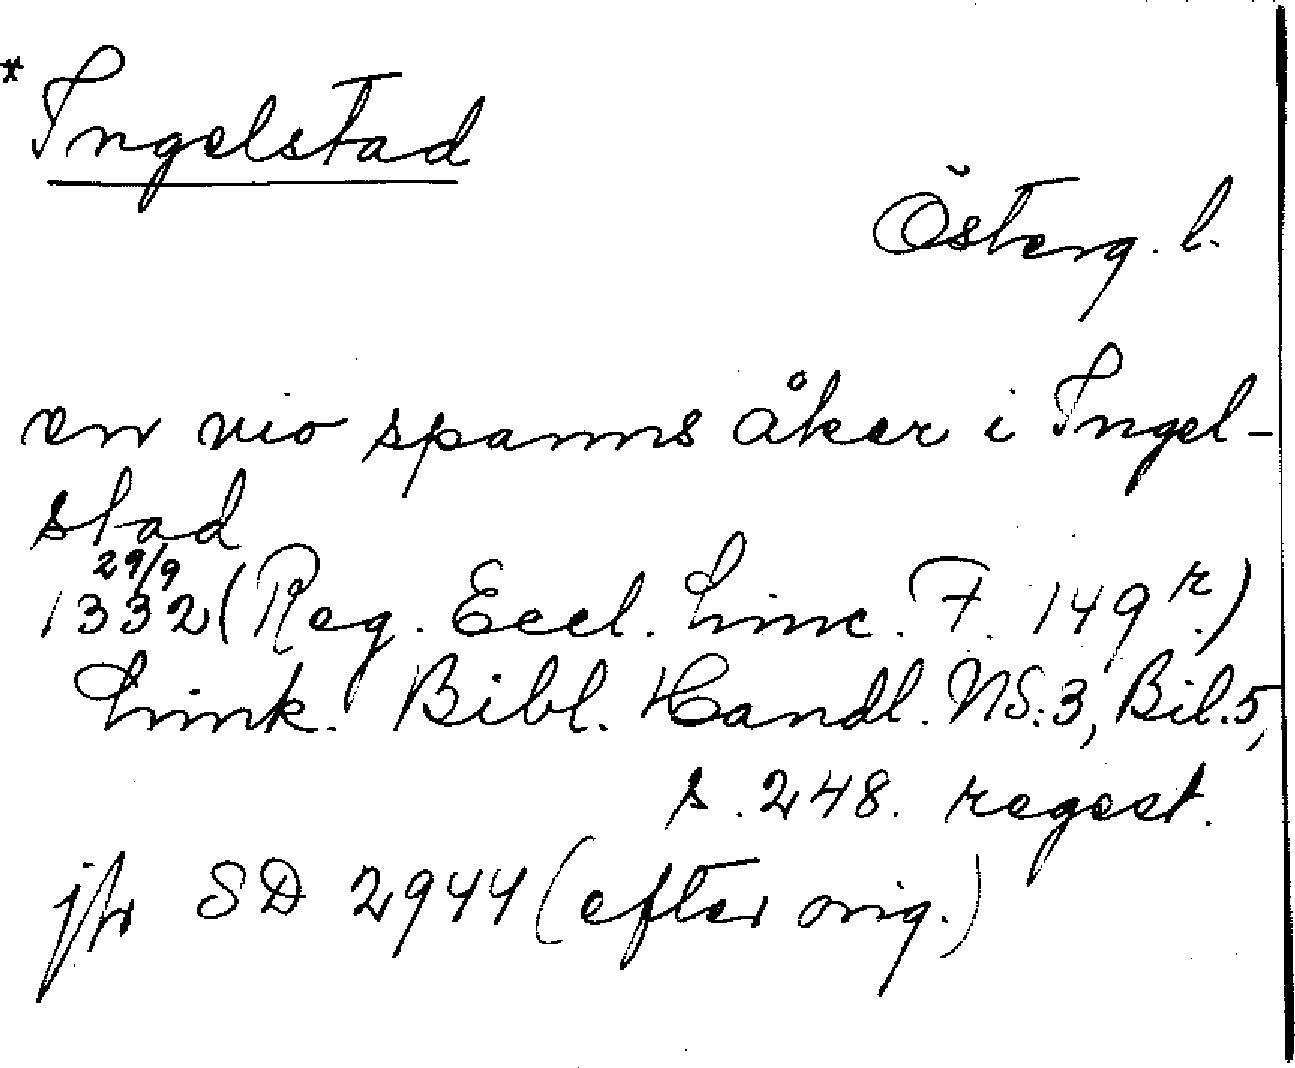 * Ingelstad
Österg. l.
en nio spanns åker i Ingel-
stad
29/9
1332 (Reg. Eccl. Linc. F. 149r.)
Link. Bibl. Handl. NS:3, Bil.5,
s. 248. regest.
jfr SD 2944 (efter orig.)